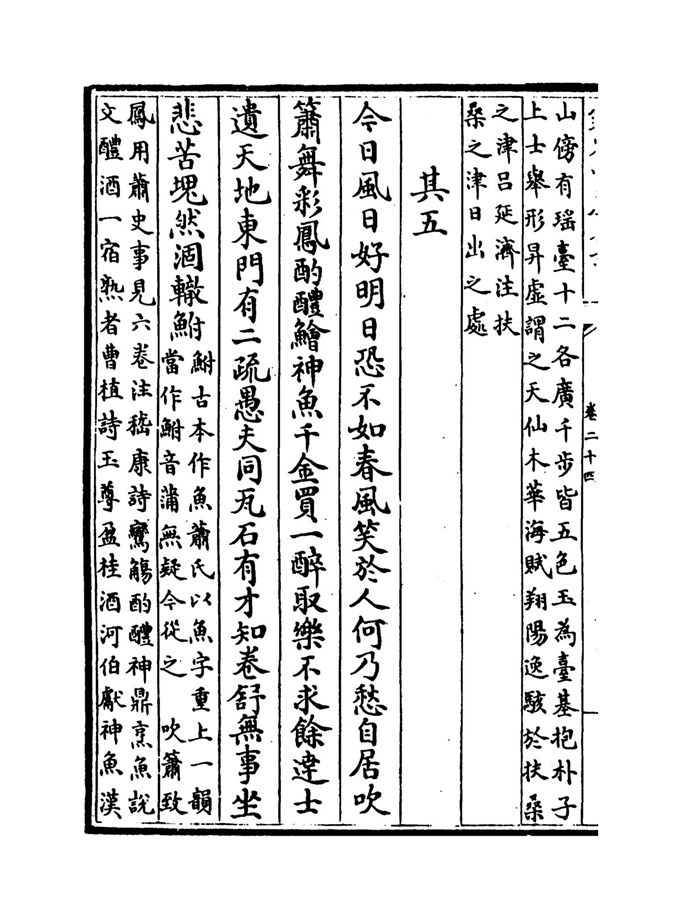 卷二十四
山傍有瑶臺十二各廣千步皆五色玉為臺基抱朴子
上士舉形昇虛謂之天仙木華海賦翔陽逸駭於扶桑
之津吕延濟注扶
桑之津日出之處
其五
今日風日好明日恐不如春風笑於人何乃愁自居吹
簫舞彩鳳酌醴鱠神魚千金買一醉取樂不求餘達士
遺天地東門有二疏愚夫同瓦石有才知卷舒無事坐
悲苦塊然涸轍鮒
鮒古本作魚蕭氏以魚字重上一韻
當作鮒音蒲無疑今從之 吹簫致
鳳用蕭史事見六卷注嵇康詩鸞觴酌醴神鼎烹魚説
文醴酒一宿熟者曹植詩玉尊盈桂酒河伯獻神魚漢